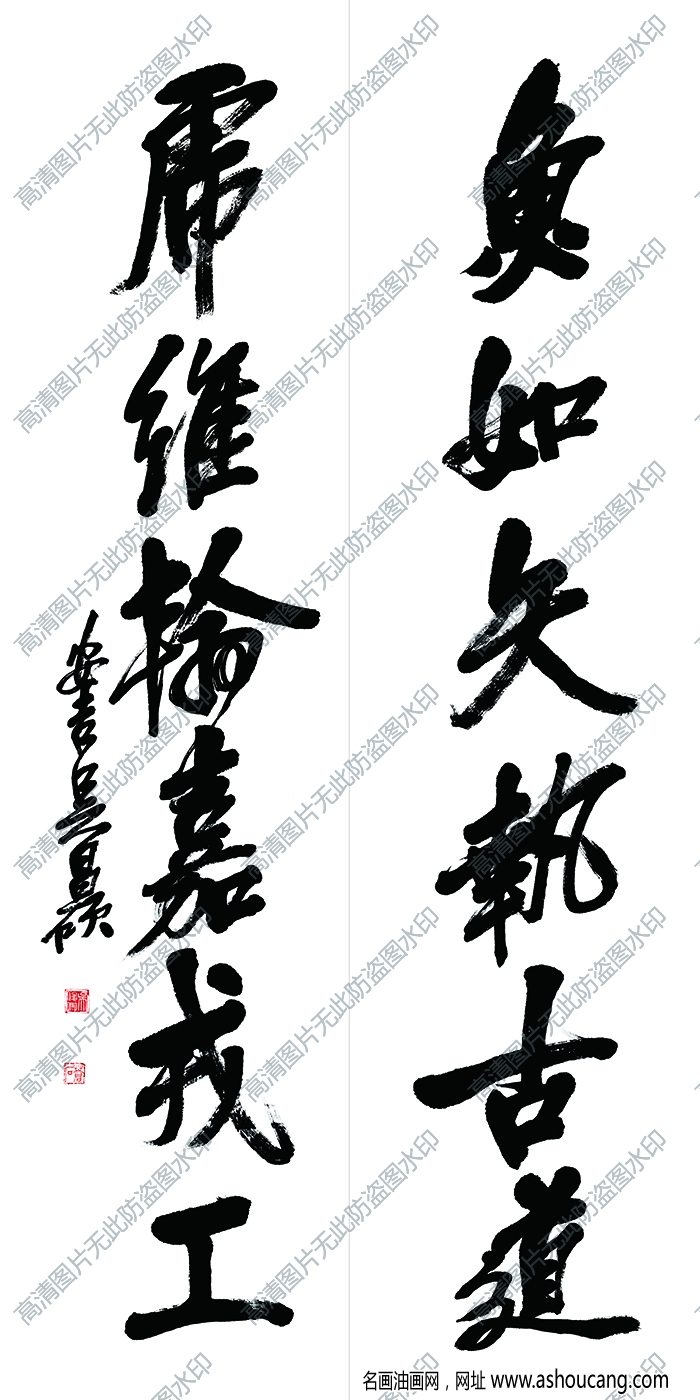 如矢執古道
維翰嘉戎工
安吉吴昌碩
高清图片无此防盗图水印
名画油画网，网址 www.ashoucang.com